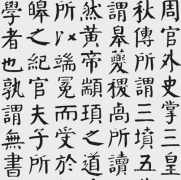 周官外史掌三
秋傳所謂三墳五
謂皋夔稷卨所讀
然黃帝顓頊之道
所以端冕而受於
皞之紀官夫子所
學者也孰謂無書